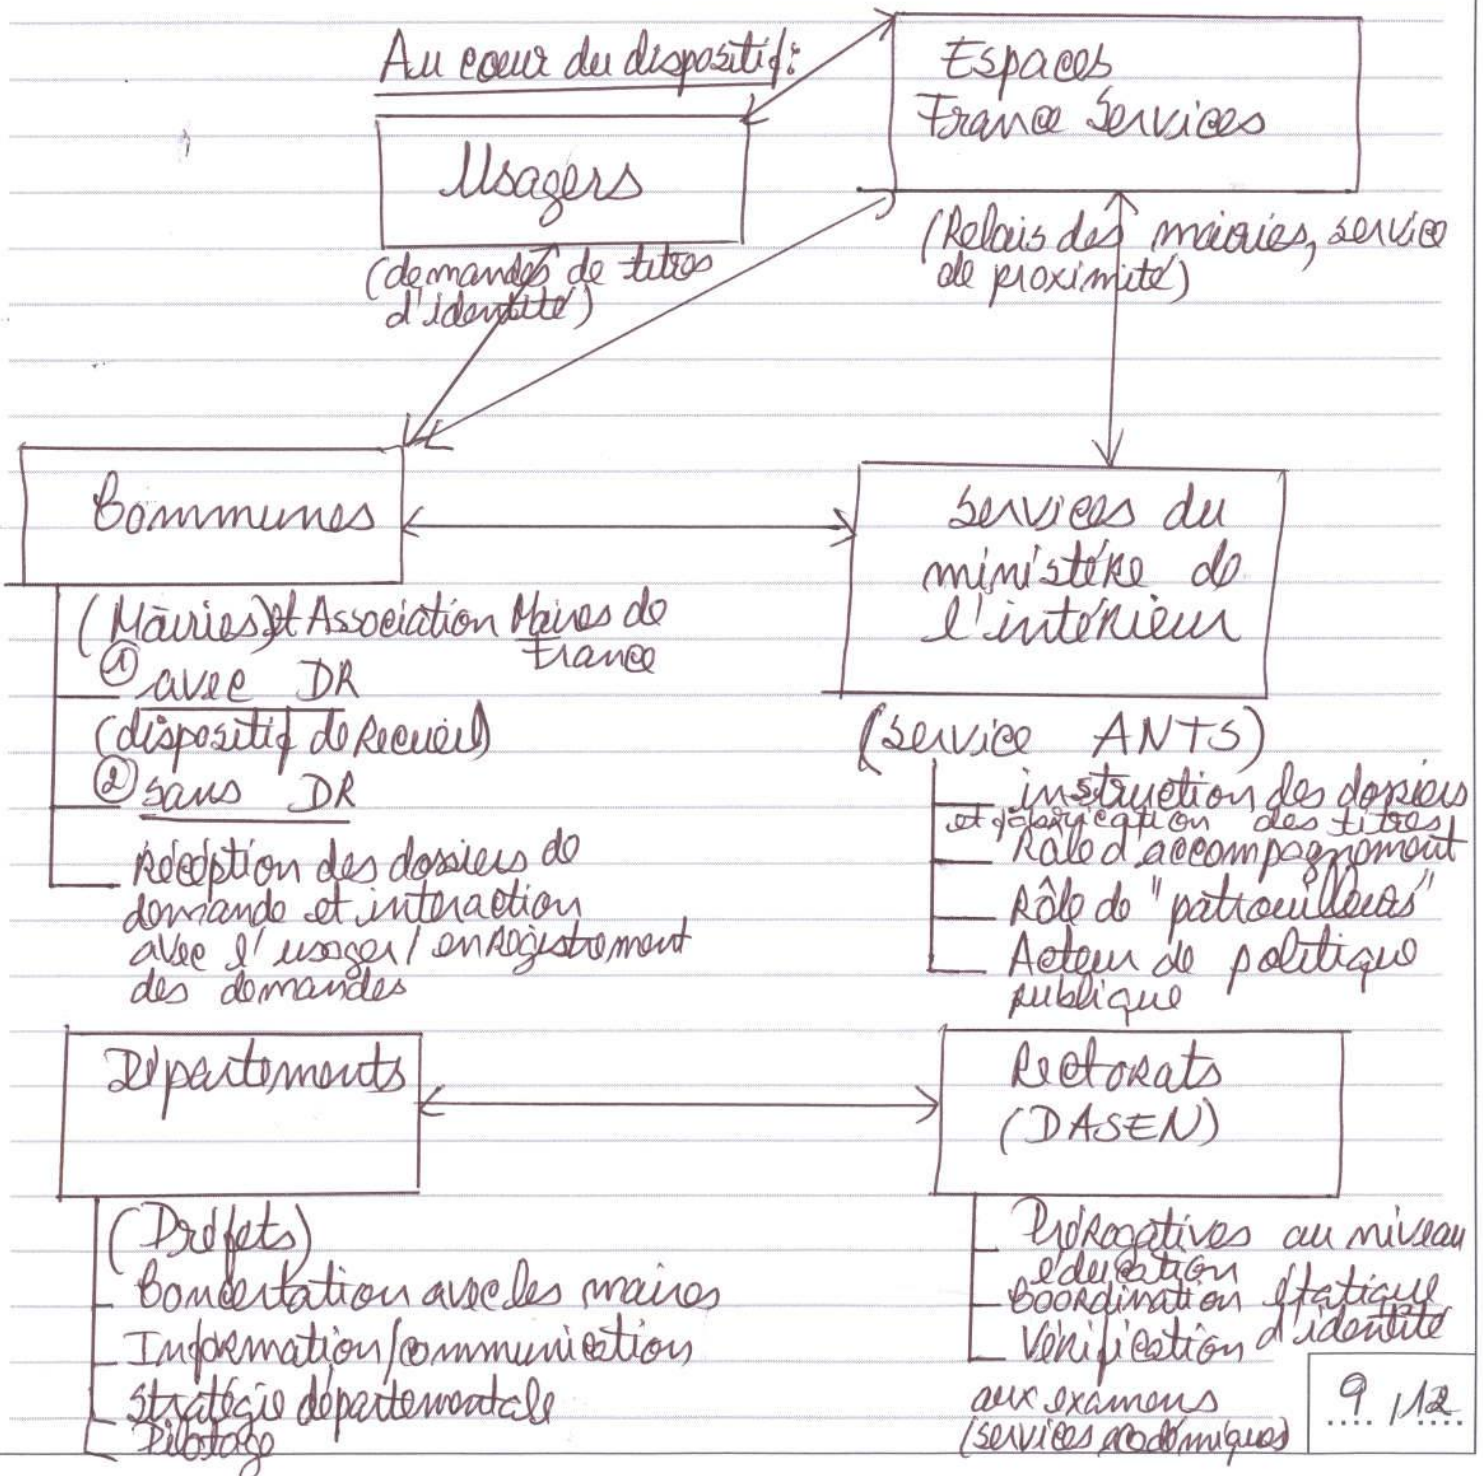 Au coeur du dispositif:
Usagers
(demandes de titres
d'identité)
Espaces
France Services
(Relais des mairies, service
de proximité)
Communes
(Mairies) et Association Maires de
France
① avec DR
(dispositif de recueil)
② sans DR
Réception des dossiers de
demande et interaction
avec l'usager / enregistrement
des demandes
Services du
ministère de
l'intérieur
(service ANTS)
instruction des dossiers
et fabrication des titres
Rôle d'accompagnement
Rôle de "patrouilleurs"
Acteur de politique
publique
Départements
(Préfets)
Concertation avec les maires
Information/communication
Stratégie départementale
Pilotage
Rectorats
(DASEN)
Prérogatives au niveau
éducation
Coordination étatique
Vérification d'identité
aux examens
(services académiques)
9 / 12